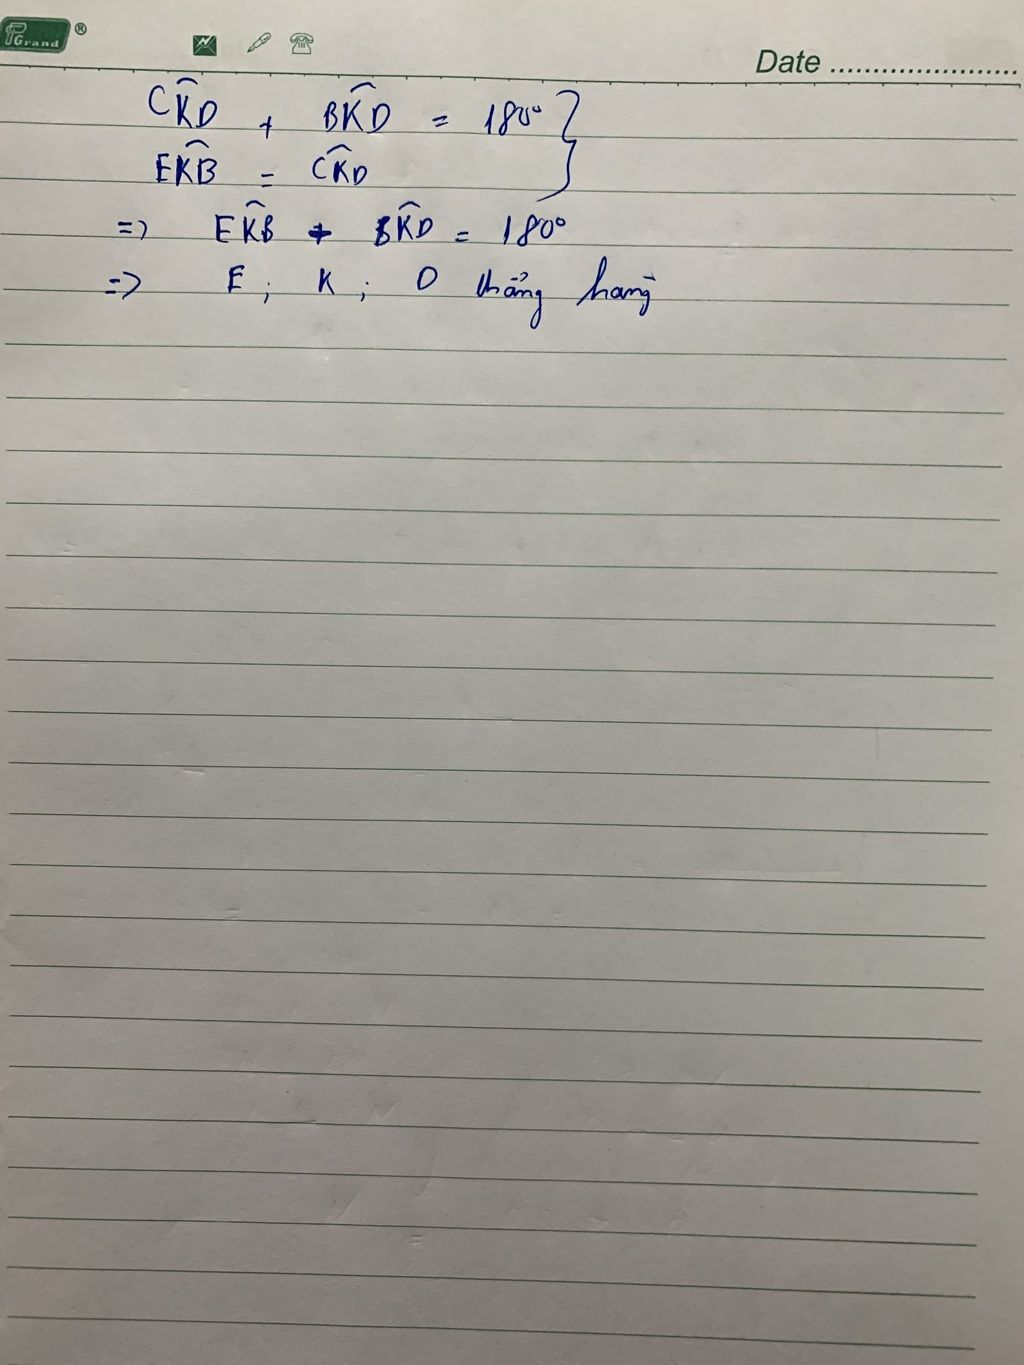 PGrand ®
Date ........................
CK̂D + BK̂D = 180°
EK̂B = CK̂D
=> EK̂B + BK̂D = 180°
=> E ; K ; D thẳng hàng